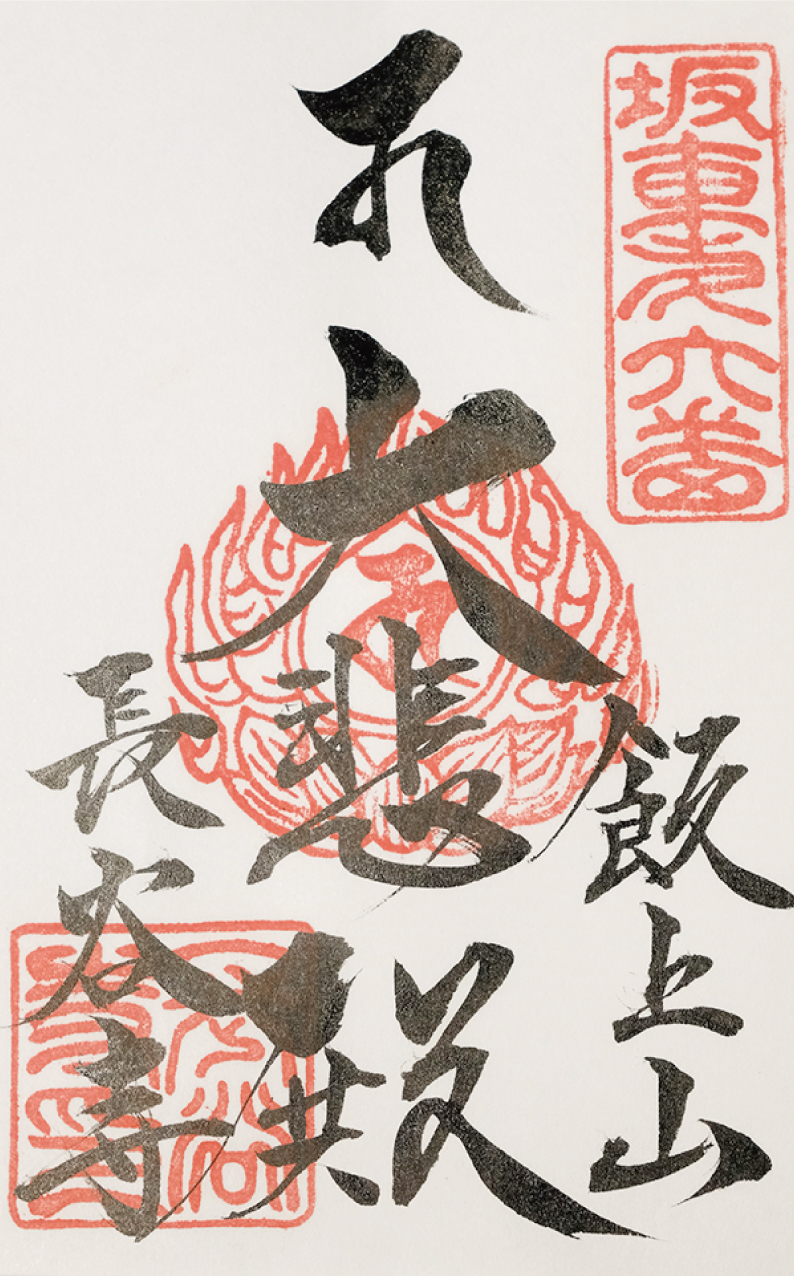 坂東六番
飯上山
大悲殿
長谷寺